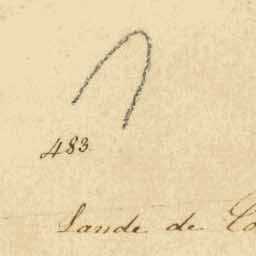 483
Lande de